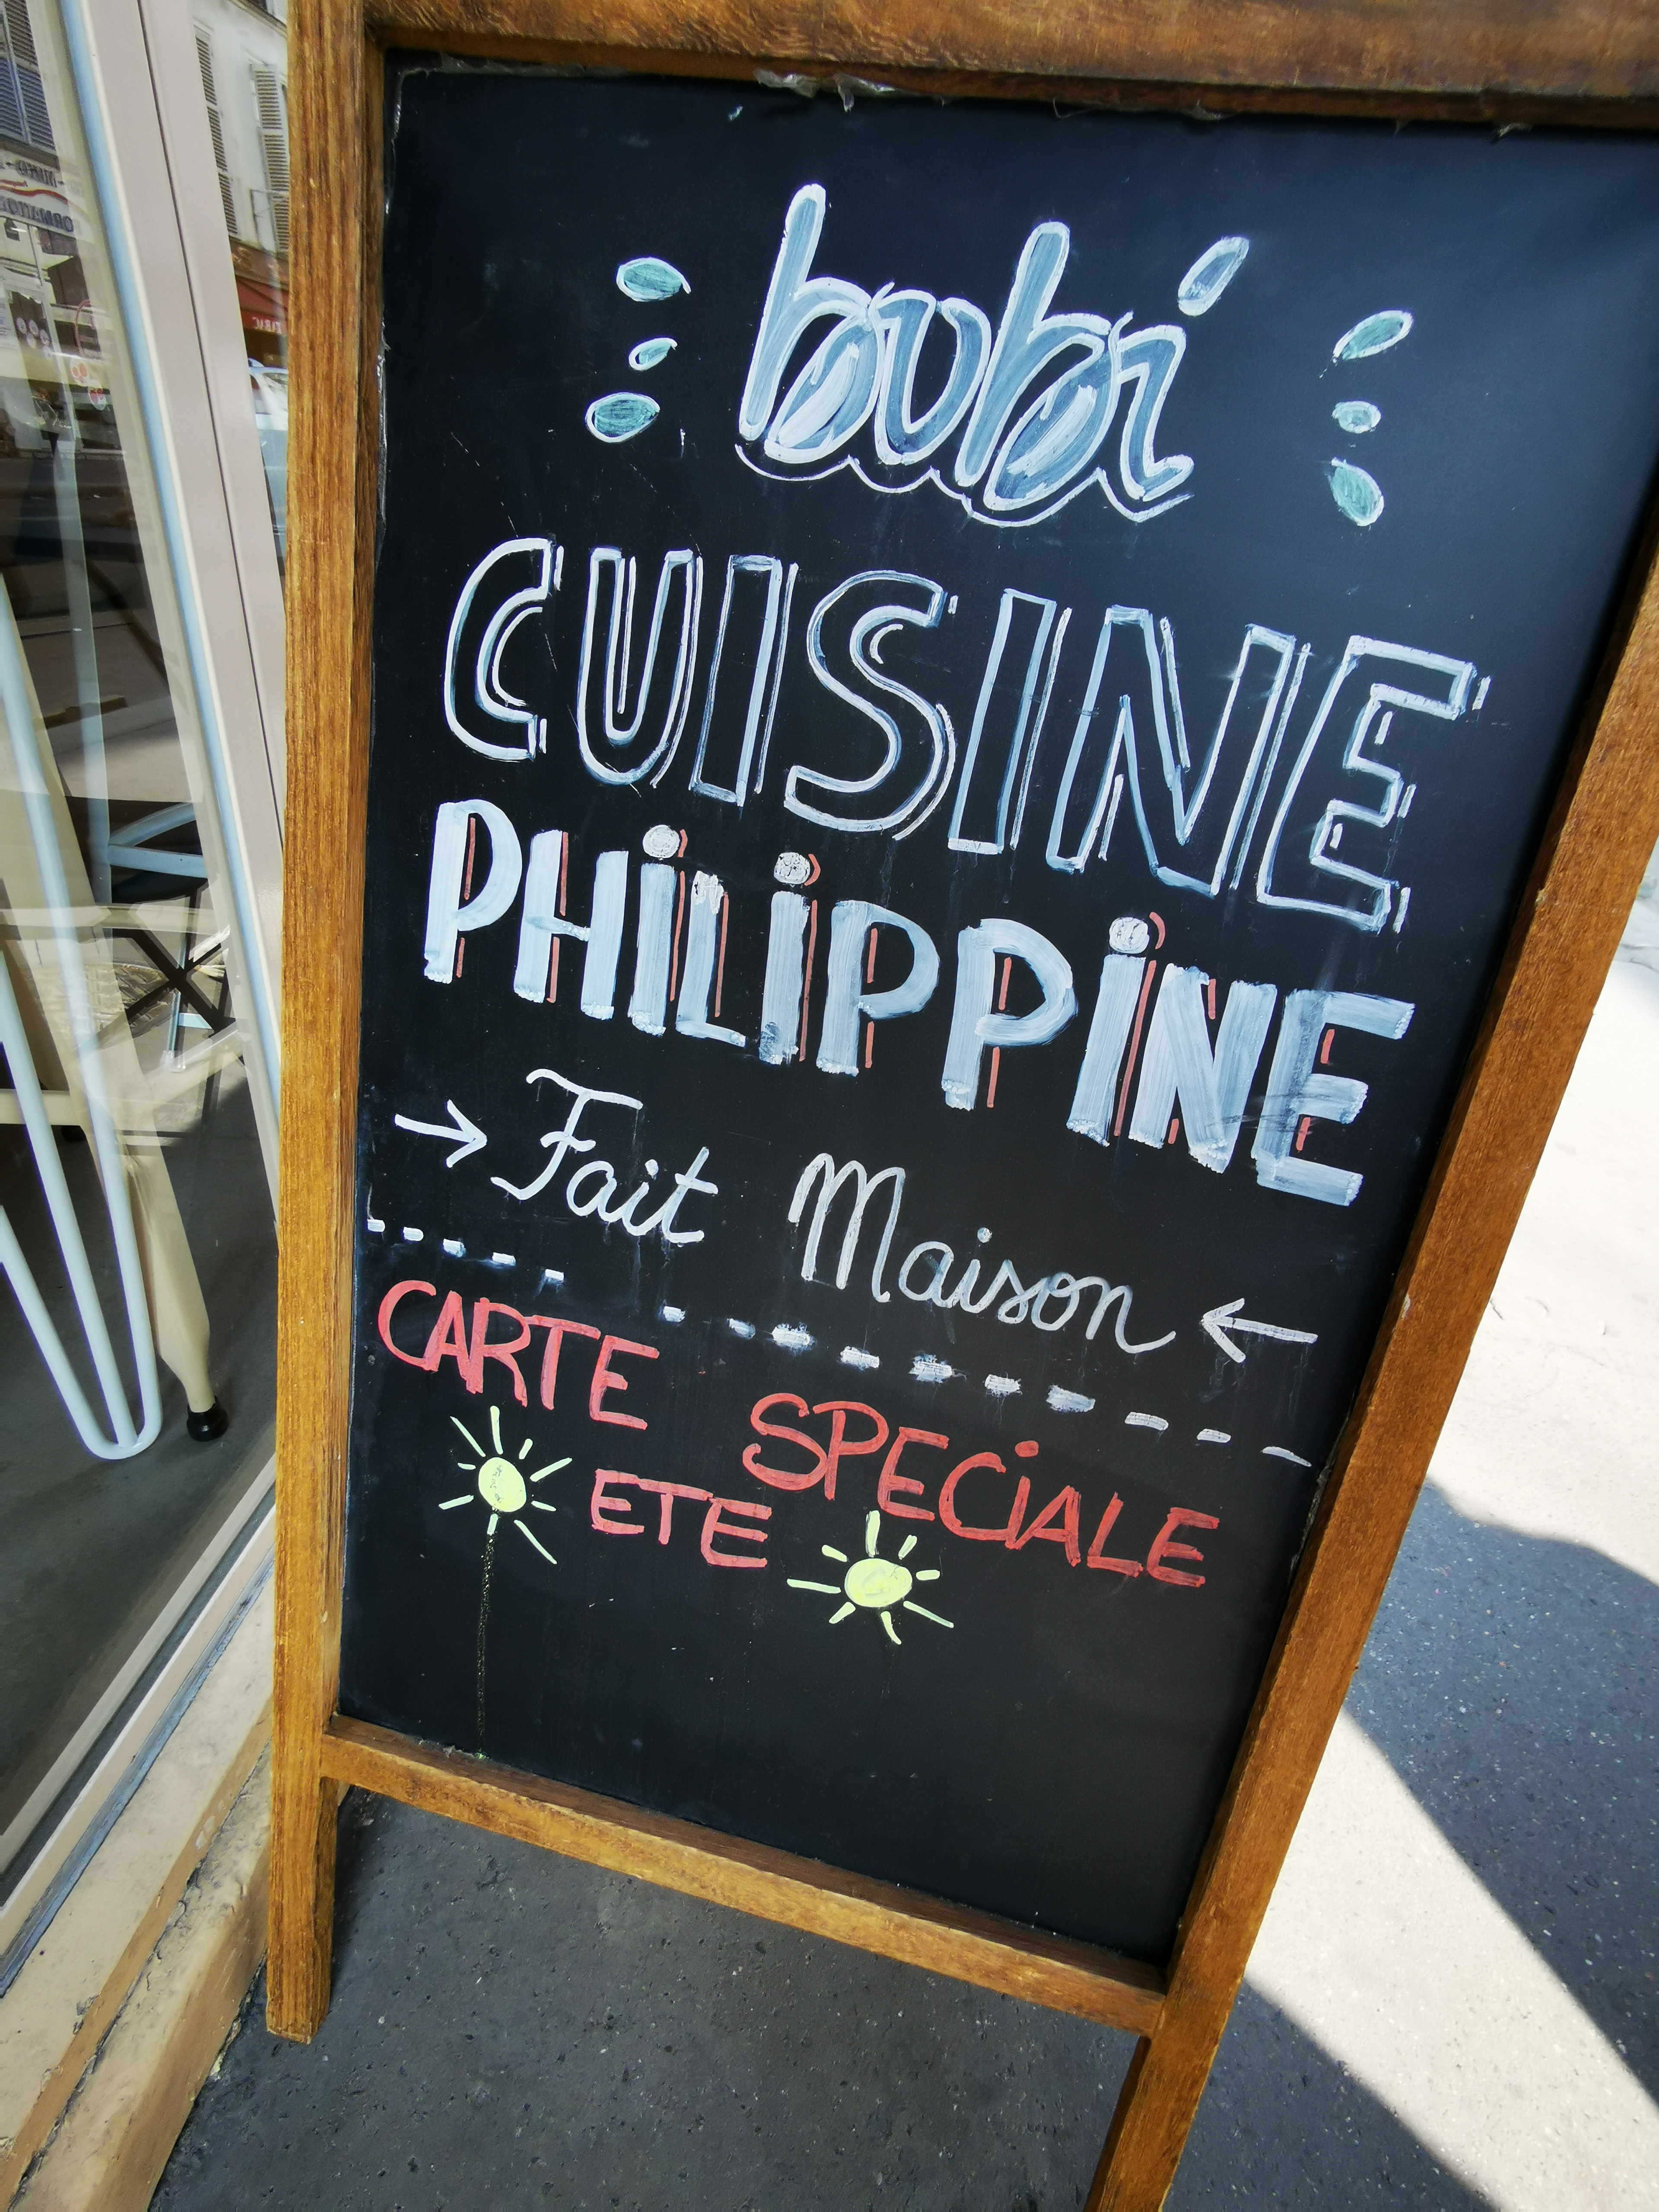 bubi
CUISINE
PHiLiPPiNE
→ Fait Maison ←
CARTE SPECiALE
ETE